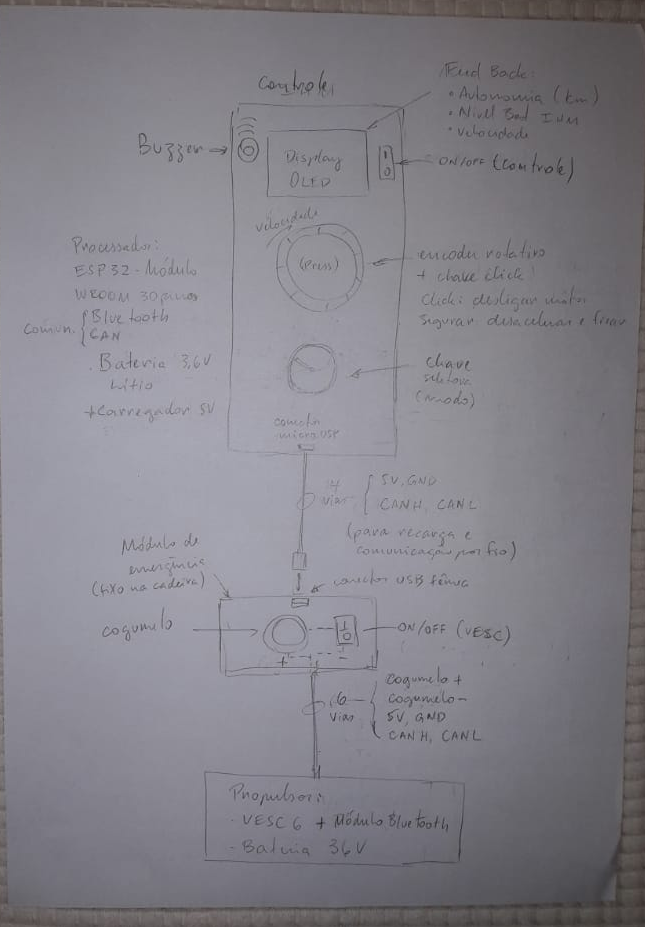 Controle
Feed Back:
• Autonomia (km)
• Nível Bat
• velocidade
Buzzer
Display
OLED
1
0
ON/OFF (Controle)
velocidade
(Press)
encoder rotativo
+ chave click!
Click: desligar motor
Segurar desacelerar e frear
Processador:
ESP 32 - Módulo
WROOM 30 pinos
Comun. { Bluetooth
CAN
. Bateria 3,6V
Lítio
+ Carregador 5V
chave
seletora
(modo)
conector
micro USB
4
vias
{ 5V, GND
CANH, CANL
(para recarga e
comunicação por fio)
Módulo de
emergência
(fixo na cadeira)
conector USB fêmea
cogumelo
1
0
ON/OFF (VESC)
+ -
6
vias
cogumelo +
cogumelo -
5V, GND
CANH, CANL
Propulsor:
- VESC 6 + Módulo Bluetooth
- Bateria 36V